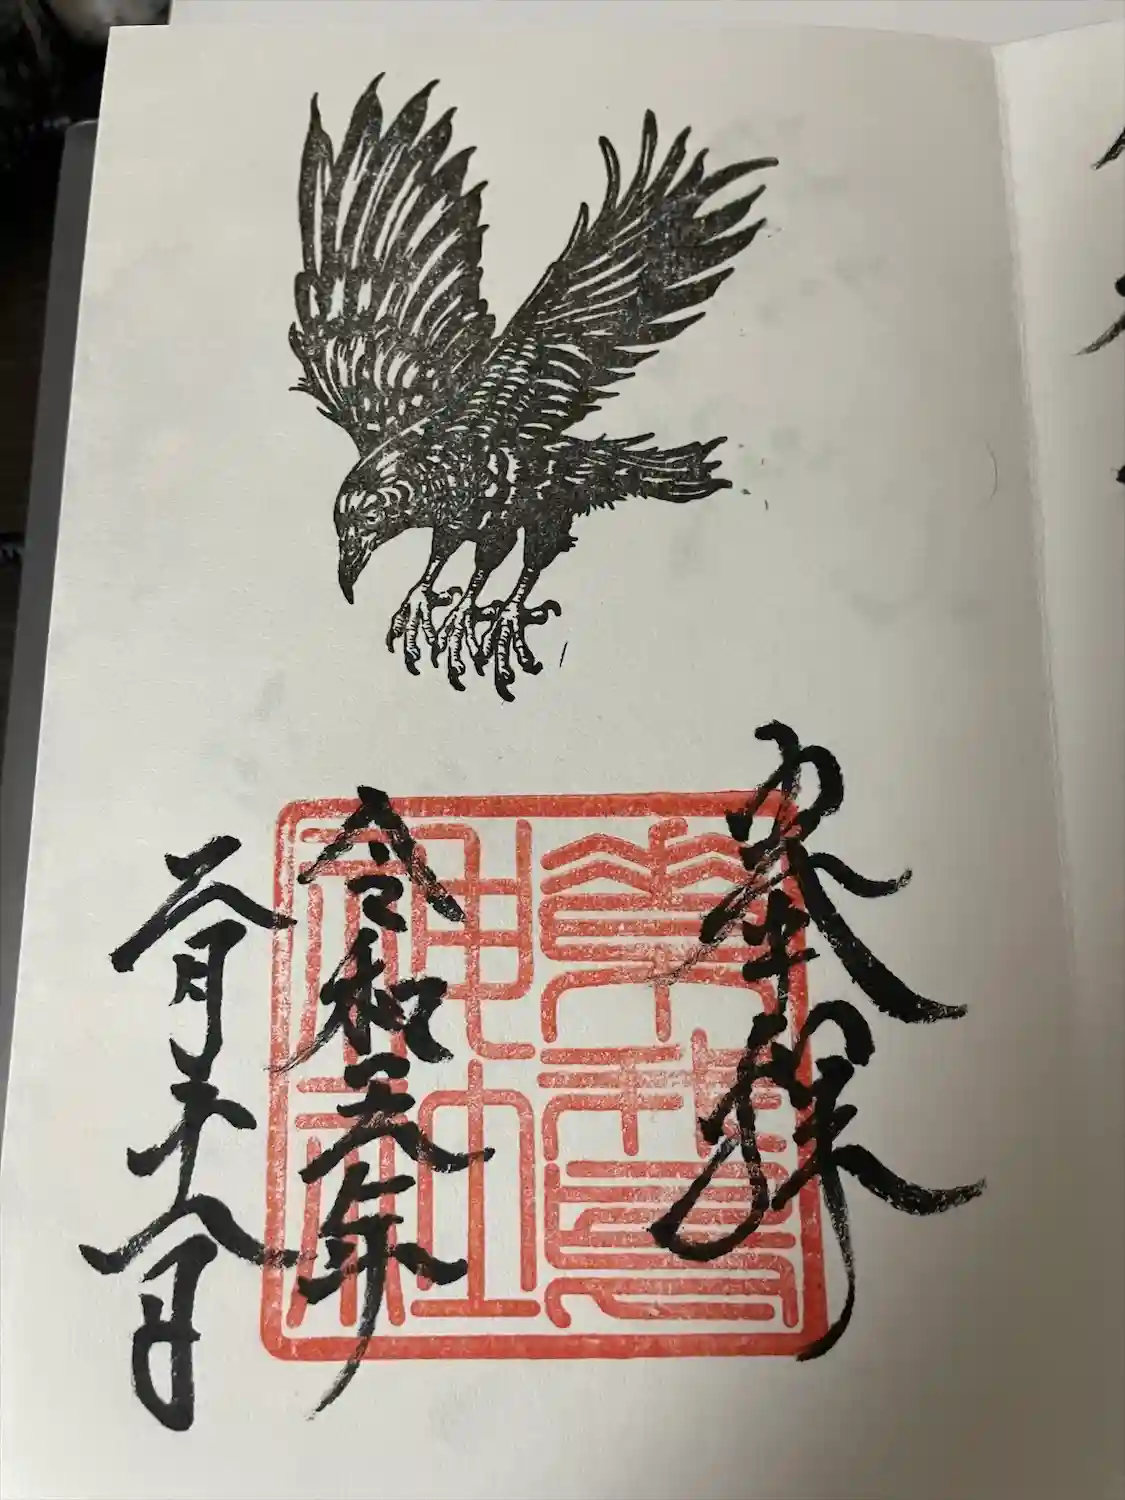 奉拝
神社
令和五年
六月十八日